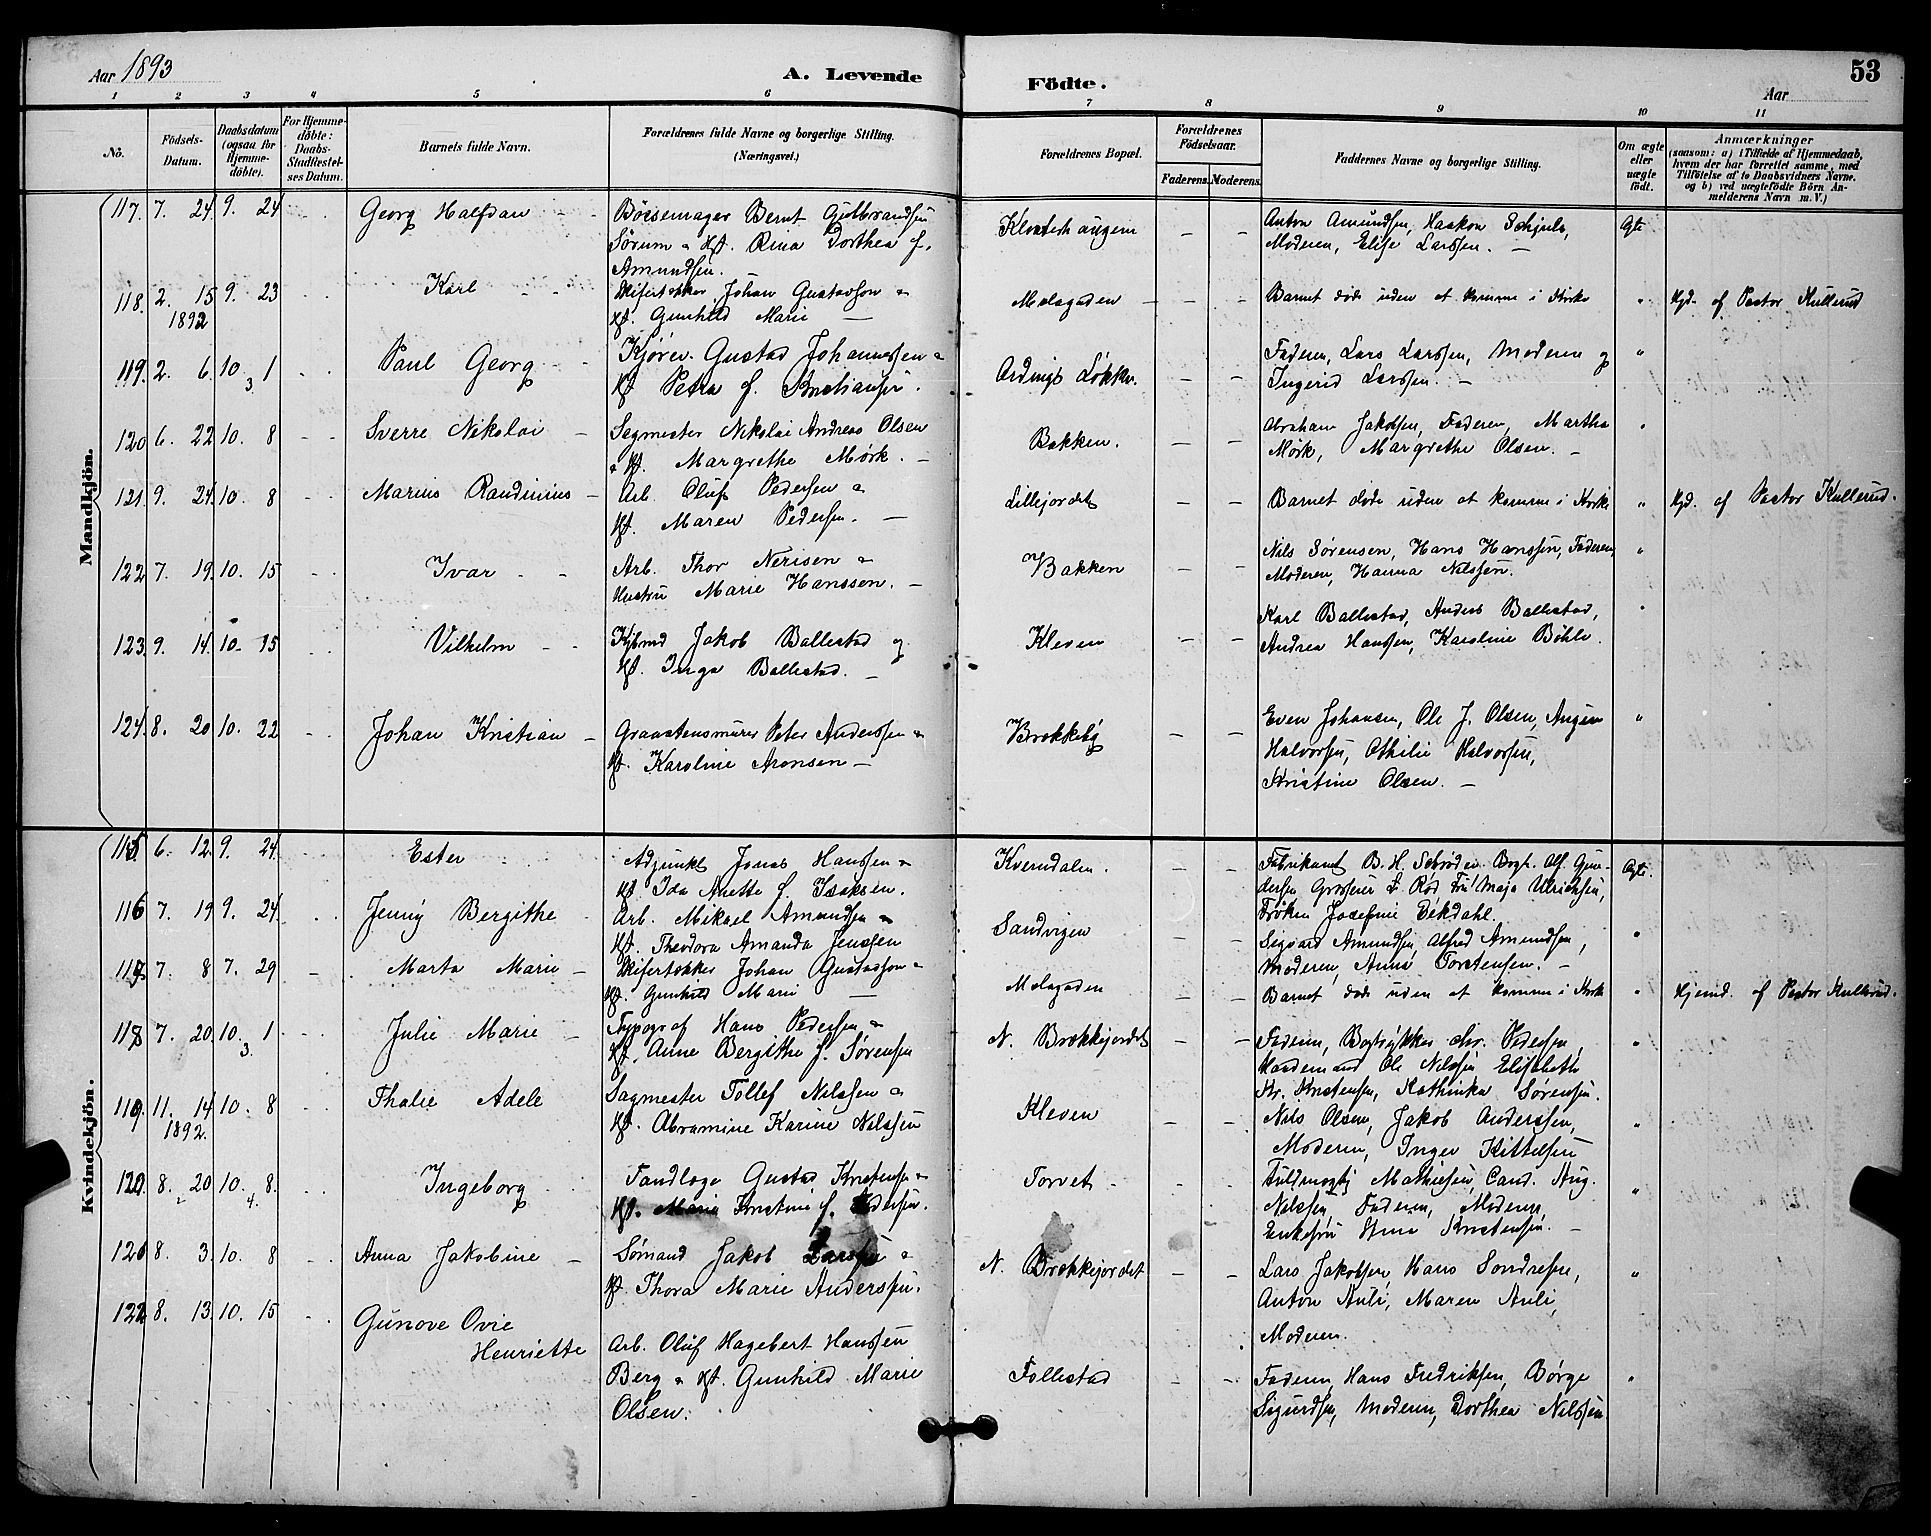 Aar 1893
A. Levende
Födte.
53
Aar
1 2 3 4 5 6 7 8 9 10 11
No.
Födsels-Datum.
Daabsdatum (ogsaa for Hjemme-döbte).
For Hjemme-döbte: Daabs-Stadfæstel-ses Datum.
Barnets fulde Navn.
Forældrenes fulde Navne og borgerlige Stilling.
(Næringsvei.)
Forældrenes Bopæl.
Forældrenes Födselsaar.
Faderens. Moderens.
Faddernes Navne og borgerlige Stilling.
Om ægte eller uægte födt.
Anmærkninger
(saasom: a) i Tilfælde af Hjemmedaab,
hvem der har forrettet samme, med
Tilföielse af to Daabsvidners Navne.
og b) ved uægtefödte Börn An-
melderens Navn m. V.)
Mandkjön.
117. 7. 24 9. 24 Georg Halfdan Bösemager Bernt Gulbrandsen
Sørum & Kst. Rina Dorthea f.
Amundsen.
Klosterhaugen
Anton Amundsen, Haakon Schjule,
Moderen, Elise Larssen.
Ægte
118. 2. 15 9. 23 Karl Skifertækker Johan Gustavson &
1892 Kst. Gunhild Marie
Mælagaden
Barnet døde uden at komme i Kirke
Hjd. af Pastor Kullerud
119. 2. 6. 10 1 Paul Georg Kjørev. Gustav Johannessen &
3 Kst. Petra f. Kristiansen.
Ardings Løkke.
Faderen, Lars Larssen, Moderen og
Ingerid Larssen.
120 6. 22 10. 8 Sverre Nikolai Sagmester Nikolai Andreas Olsen
& Kst. Margrethe Mørk.
Bakken.
Abraham Jakobsen, Faderen, Martha
Mørk, Margrethe Olsen.
121. 9. 24 10. 8 Marius Randinius Arb. Oluf Pedersen &
Kst. Maren Pedersen.
Lillejordet
Barnet døde uden at komme i Kirke
Hjd. af Pastor Kullerud.
122 7. 19. 10. 15 Ivar Arb. Thor Nerisen &
Hustru Marie Hanssen.
Bakken
Nils Sørensen, Hans Hanssen, Faderen,
Moderen, Hanna Nilssen.
123. 9. 14. 10. 15 Vilhelm Jakob Ballestad og
Kst. Inga Ballestad.
Kleven
Karl Ballestad, Anders Ballestad,
Andrea Hanssen, Karoline Bøhle.
124. 8. 20 10. 22 Johan Kristian Graastensmurer Peter Anderssen &
Kst. Karoline Aronsen
Brekkeby
Even Johansen, Ole J. Olsen, Augen
Halvorsen, Othilie Halvorsen,
Kristine Olsen.
Kvindekjön.
115 6. 12. 9. 24. Ester Adjunkt Jonas Hanssen &
Kst. Ida Anette f. Isaksen.
Kverndalen.
Fabrikant B. H. Schrøder. Bogh. Alf. Gun-
dersen Grosserer Röd Fru Maja Ulrichsen,
Frøken Josefine Eekdahl.
Ægte.
116 7. 19 9. 24 Jenny Bergithe Arb. Mikael Amundsen &
Kst. Theodora Amanda Jenssen
Sandvigen
Sigvard Amundsen, Alfred Amundsen,
Moderen, Anna Torstensen.
117 7. 8 7. 29 Marta Marie Skifertækker Johan Gustavsson &
Kst. Gunhild Marie
Mælagaden
Barnet døde uden at komme i Kirke
Hjemd. af Pastor Kullerud.
118 7. 20 10. 1 Julie Marie Typograf Hans Pedersen &
3. Kst. Anne Bergithe f. Sørensen
N. Brekkejordet
Faderen, Bogtrykker Chr. Pedersen,
Handemand Ole Nilssen Elisabeth
Kr. Kristensen, Kathinka Sørensen.
119. 11. 14 10. 8 Thalie Adele Sagmester Tollef Nilssen &
1892. Kst. Abramine Karine Nilssen
Kleven
Nils Olsen, Jakob Anderssen,
Moderen, Inger Kittelsen
120. 8. 20 10. 8. Ingeborg Tandlæge Gustav Kristensen &
4. Kst. Marie Kristine f. Pedersen.
Torvet
Fuldmægtig Mathiesen, Cand. Aug.
Nilssen, Faderen, Moderen,
Enkefru Kristensen.
121 8. 3. 10. 8 Anna Jakobine Sømand Jakob Larssen &
Kst. Thora Marie Anderssen.
N. Brekkejordet
Lars Jakobsen, Hans Sondresen,
Anton Auli, Maren Auli,
Moderen.
122 8. 13. 10. 15 Gunove Ovie
Henriette
Arb. Oluf Hagebert Hanssen
Berg & Kst. Gunhild Marie
Olsen.
Follestad
Faderen, Hans Fredriksen, Børge
Sigurdsen, Moderen, Dorthea Nilssen.